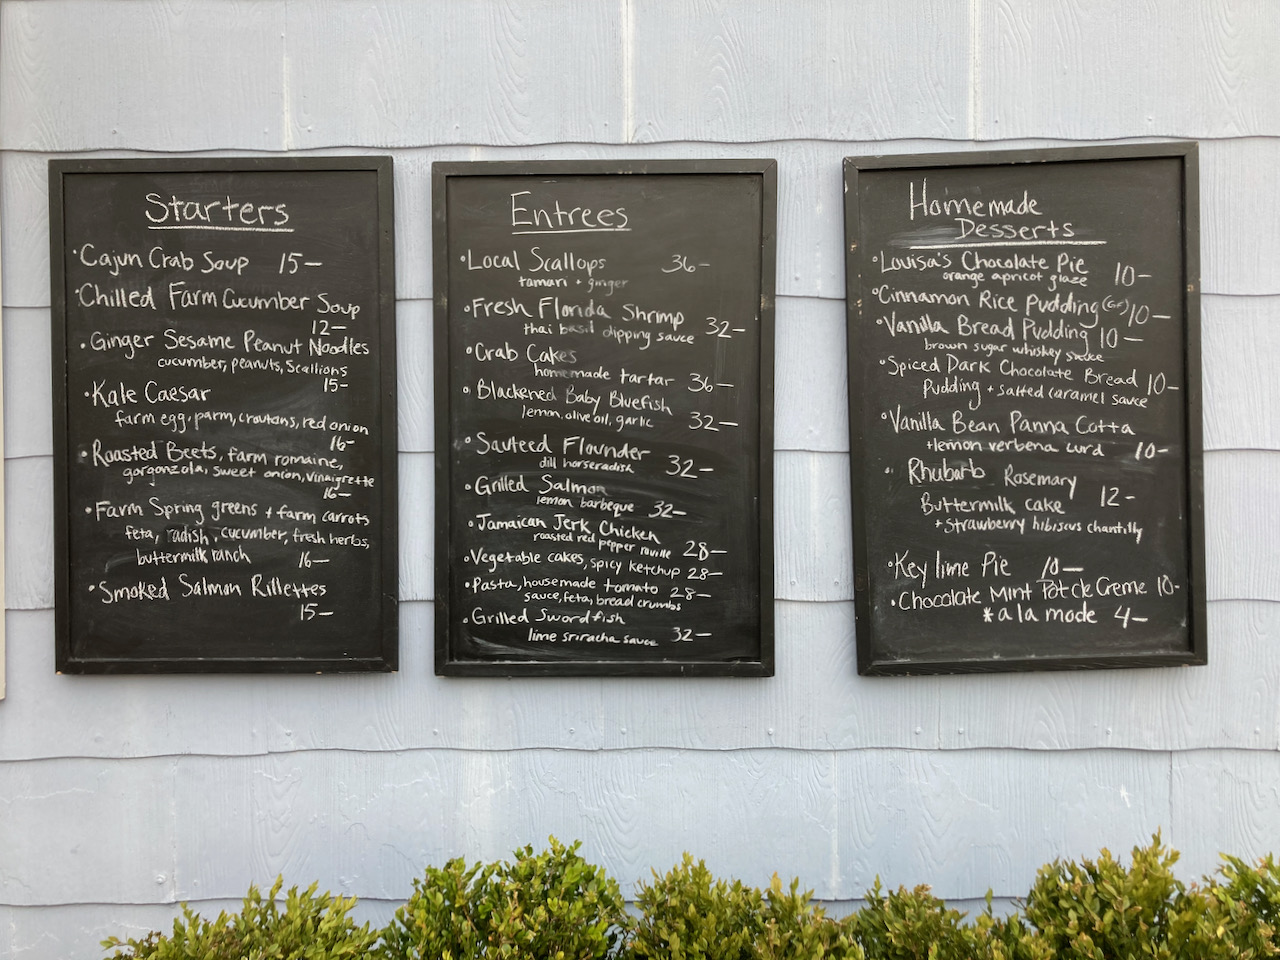 Starters
• Cajun Crab Soup 15—
• Chilled Farm Cucumber Soup
12—
• Ginger Sesame Peanut Noodles
cucumber, peanuts, scallions
15—
• Kale Caesar
farm egg, parm, croutans, red onion
16—
• Roasted Beets, farm romaine,
gorgonzola, sweet onion, vinaigrette
16—
• Farm Spring greens + farm carrots
feta, radish, cucumber, fresh herbs,
buttermilk ranch 16—
• Smoked Salmon Rillettes
15—
Entrees
• Local Scallops 36—
tamari + ginger
• Fresh Florida Shrimp
thai basil dipping sauce 32—
• Crab Cakes
homemade tartar 36—
• Blackened Baby Bluefish
lemon, olive oil, garlic 32—
• Sauteed Flounder
dill horseradish 32—
• Grilled Salmon
lemon barbeque 32—
• Jamaican Jerk Chicken
roasted red pepper 28—
• Vegetable cakes, spicy ketchup 28—
• Pasta, housemade tomato 28—
sauce, feta, bread crumbs
• Grilled Swordfish
lime sriracha sauce 32—
Homemade
Desserts
• Louisa's Chocolate Pie
orange apricot glaze 10—
• Cinnamon Rice Pudding (GF) 10—
• Vanilla Bread Pudding 10—
brown sugar whiskey sauce
• Spiced Dark Chocolate Bread 10—
Pudding + salted caramel sauce
• Vanilla Bean Panna Cotta
+ lemon verbena curd 10—
• Rhubarb Rosemary
Buttermilk cake 12-
+ strawberry hibiscus chantilly
• Key lime Pie 10—
• Chocolate Mint Pot de Creme 10-
* a la mode 4—